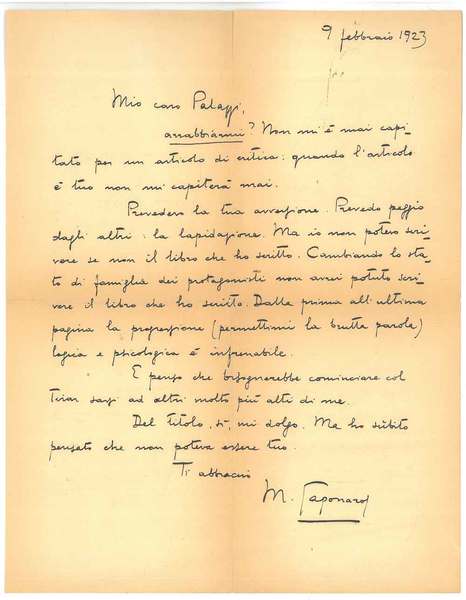 9 febbraio 1923
Mio caro Palazzi,
arrabbiarmi? Non mi è mai capi-
tato per un articolo di critica: quando l'articolo
è tuo non mi capiterà mai.
Prevedevo la tua avversione. Prevedo peggio
dagli altri: la lapidazione. Ma io non potevo scri-
vere se non il libro che ho scritto. Cambiando lo sta-
to di famiglia dei protagonisti non avrei potuto scri-
vere il libro che ho scritto. Dalla prima all'ultima
pagina la progressione (permettimi la brutta parola)
logica e psicologica è infrenabile.
E penso che bisognerebbe cominciare col
sassi ad altri molto più alti di me.
Del titolo, sì, mi dolgo. Ma ho sùbito
pensato che non poteva essere tuo.
Ti abbraccio
M. Saponaro